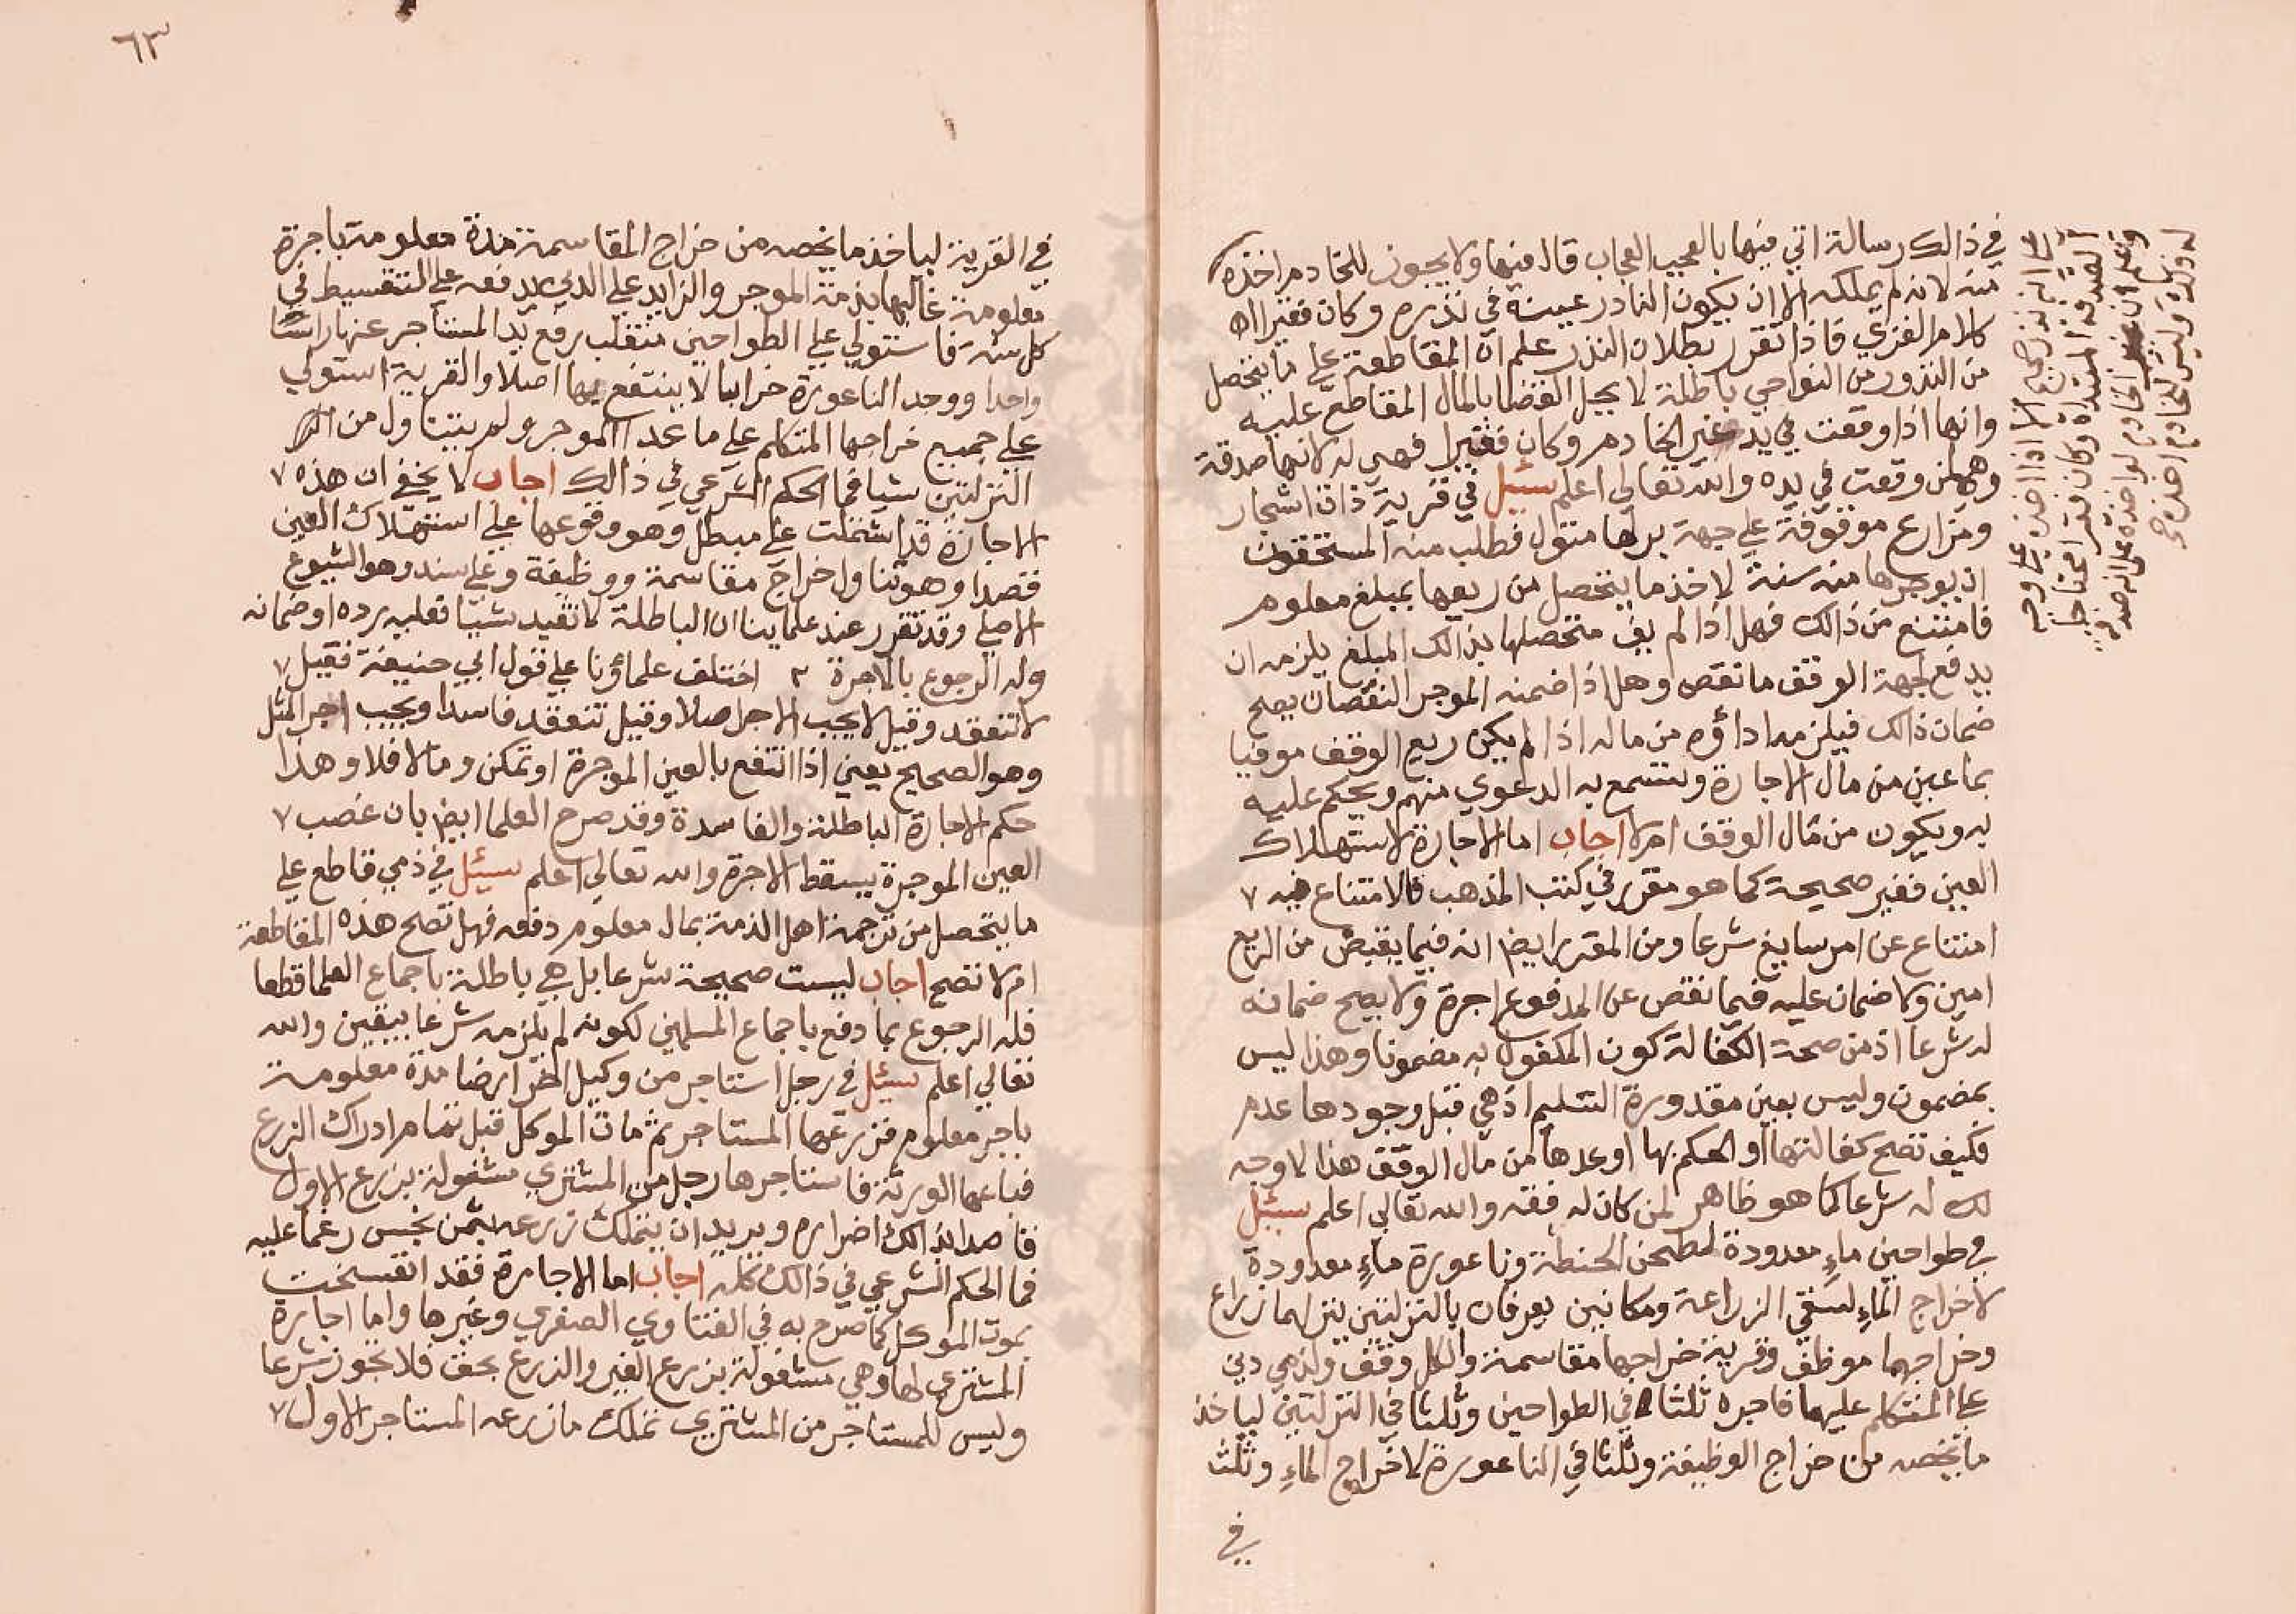 في ذالك رسالة اتي فيها بالعجب العجاب قال فيها ولا يجوز للخادم اخذه
منه لانه لم يملكه الا ان يكون الناذر عينه في نذره وكان فقيرا اه
كلام الغزي فاذا تقرر بطلان النذر علم ان المقاطعة علي ما يتحصل
من النذور من النواحي باطلة لا يحل القضا بالمال المقاطع عليه
وانها اذا وقعت في يد غير الخادم وكان فقيرا فهي له لانها صدقة
وهي لمن وقعت في يده والله تعالي اعلم سئيل في قرية ذات اشجار
ومزارع موقوفة علي جهة بر لها متول فطلب منه المستحقون
ان يوجرها منه سنة لاخذ ما يتحصل من ريعها بمبلغ معلوم
فامتنع من ذالك فهل اذا لم يف متحصلها بذالك المبلغ يلزمه ان
يدفع لجهة الوقف ما نقص وهل اذا ضمنه الموجر النقصان يصح
ضمان ذالك فيلزمه اداؤه من ماله اذا لم يكن ريع الوقف موفيا
بما عين من مال الاجارة وتسمع به الدعوي منهم ويحكم عليه
به ويكون من مال الوقف ام لا اجاب اما الاجارة لاستهلاك
العين فغير صحيحة كما هو مقرر في كتب المذهب فالامتناع فيه ٧
امتناع عن امر سايغ شرعا ومن المقرر ايضا انه فيما يقبض من الريع
امين ولا ضمان عليه فيما نقص عن المدفوع اجرة ولا يصح ضمانه
له شرعا اذ من صحة الكفالة كون المكفول به مضمونا وهذا ليس
بمضمون وليس بعين مقدورة التسليم اذ هي قبل وجودها عدم
فكيف تصح كفالتها او الحكم بها او عدها من مال الوقف هذا لا وجه
لك له شرعا كما هو ظاهر لمن كان له فقه والله تعالي اعلم سيئل
في طواحين ماء معدودة لطحن الحنطة وناعورة ماء معدودة
لاخراج الماء لسقي الزراعة ومكانين يعرفان بالتزلتين ينزلهما زراع
وخراجهما موظف وقرية خراجها مقاسمة والكل وقف ولذمي دين
علي المتكلم عليها فاجره ثلثا في الطواحين وثلثا في التزلتين لياخذ
ما يخصه من خراج الوظيفة وثلثا في الناعورة لاخراج الماء وثلث
في
٦٣
في القرية لياخذ ما يخصه من خراج المقاسمة مدة معلومة باجرة
معلومة غالبها بذمة الموجر والزايد علي الدين يدفعه علي التقسيط في
كل سنة فاستولي علي الطواحين متغلب رفع يد المستأجر عنها راسا
واحدا ووجد الناعورة خرابا لا ينتفع بها اصلا والقرية استولي
علي جميع خراجها المتكلم علي ما عدا الموجر ولم يتناول من
التزلتين شيا فما الحكم الشرعي في ذالك اجاب لا يخفي ان هذه ٧
الاجارة قد اشتملت علي مبطل وهو وقوعها علي استهلاك العين
قصدا وهو تناول خراج مقاسمة ووظيفة وعلي مفسد وهو الشيوع
الاصلي وقد تقرر عند علماينا ان الباطلة لا تفيد شيئا فعليه رده او ضمانه
وله الرجوع بالاجرة اختلف علماؤنا علي قول ابي حنيفة فقيل ٧
لا تنعقد وقيل لا يجب الاجر اصلا وقيل تنعقد فاسدا ويجب اجر المثل
وهو الصحيح يعني اذا انتفع بالعين الموجرة او تمكن وما لا فلا وهذا
حكم الاجارة الباطلة والفاسدة وقد صرح العلما ايضا بان غصب ٧
العين الموجرة يسقط الاجرة والله تعالي اعلم سيئل في ذمي قاطع علي
ما يتحصل من ترجمة اهل الذمة بمال معلوم دفعه فهل تصح هذه المقاطعة
ام لا تصح اجاب ليست صحيحة شرعا بل هي باطلة باجماع العلما قطعا
فله الرجوع بما دفع باجماع المسلمين لكونه لم يلزمه شرعا بيقين والله
تعالي اعلم سيئل في رجل استاجر من وكيل اخر ارضا مدة معلومة
باجر معلوم فزرعها المستاجر ثم مات الموكل قبل تمام ادراك الزرع
فباعها الورثة فاستاجرها رجل من المشتري مشغولة بزرع الاول
قاصدا بذالك اضراره ويريد ان يتملك زرعه بثمن بخس رغما عليه
فما الحكم الشرعي في ذالك كله اجاب اما الاجارة فقد انفسخت
بموت الموكل كما صرح به في الفتاوي الصغري وغيرها واما اجارة
المشتري لها وهي مشغولة بزرع الغير والزرع بحق فلا تجوز شرعا
وليس للمستاجر من المشتري تملك ما زرعه المستاجر الاول ٧